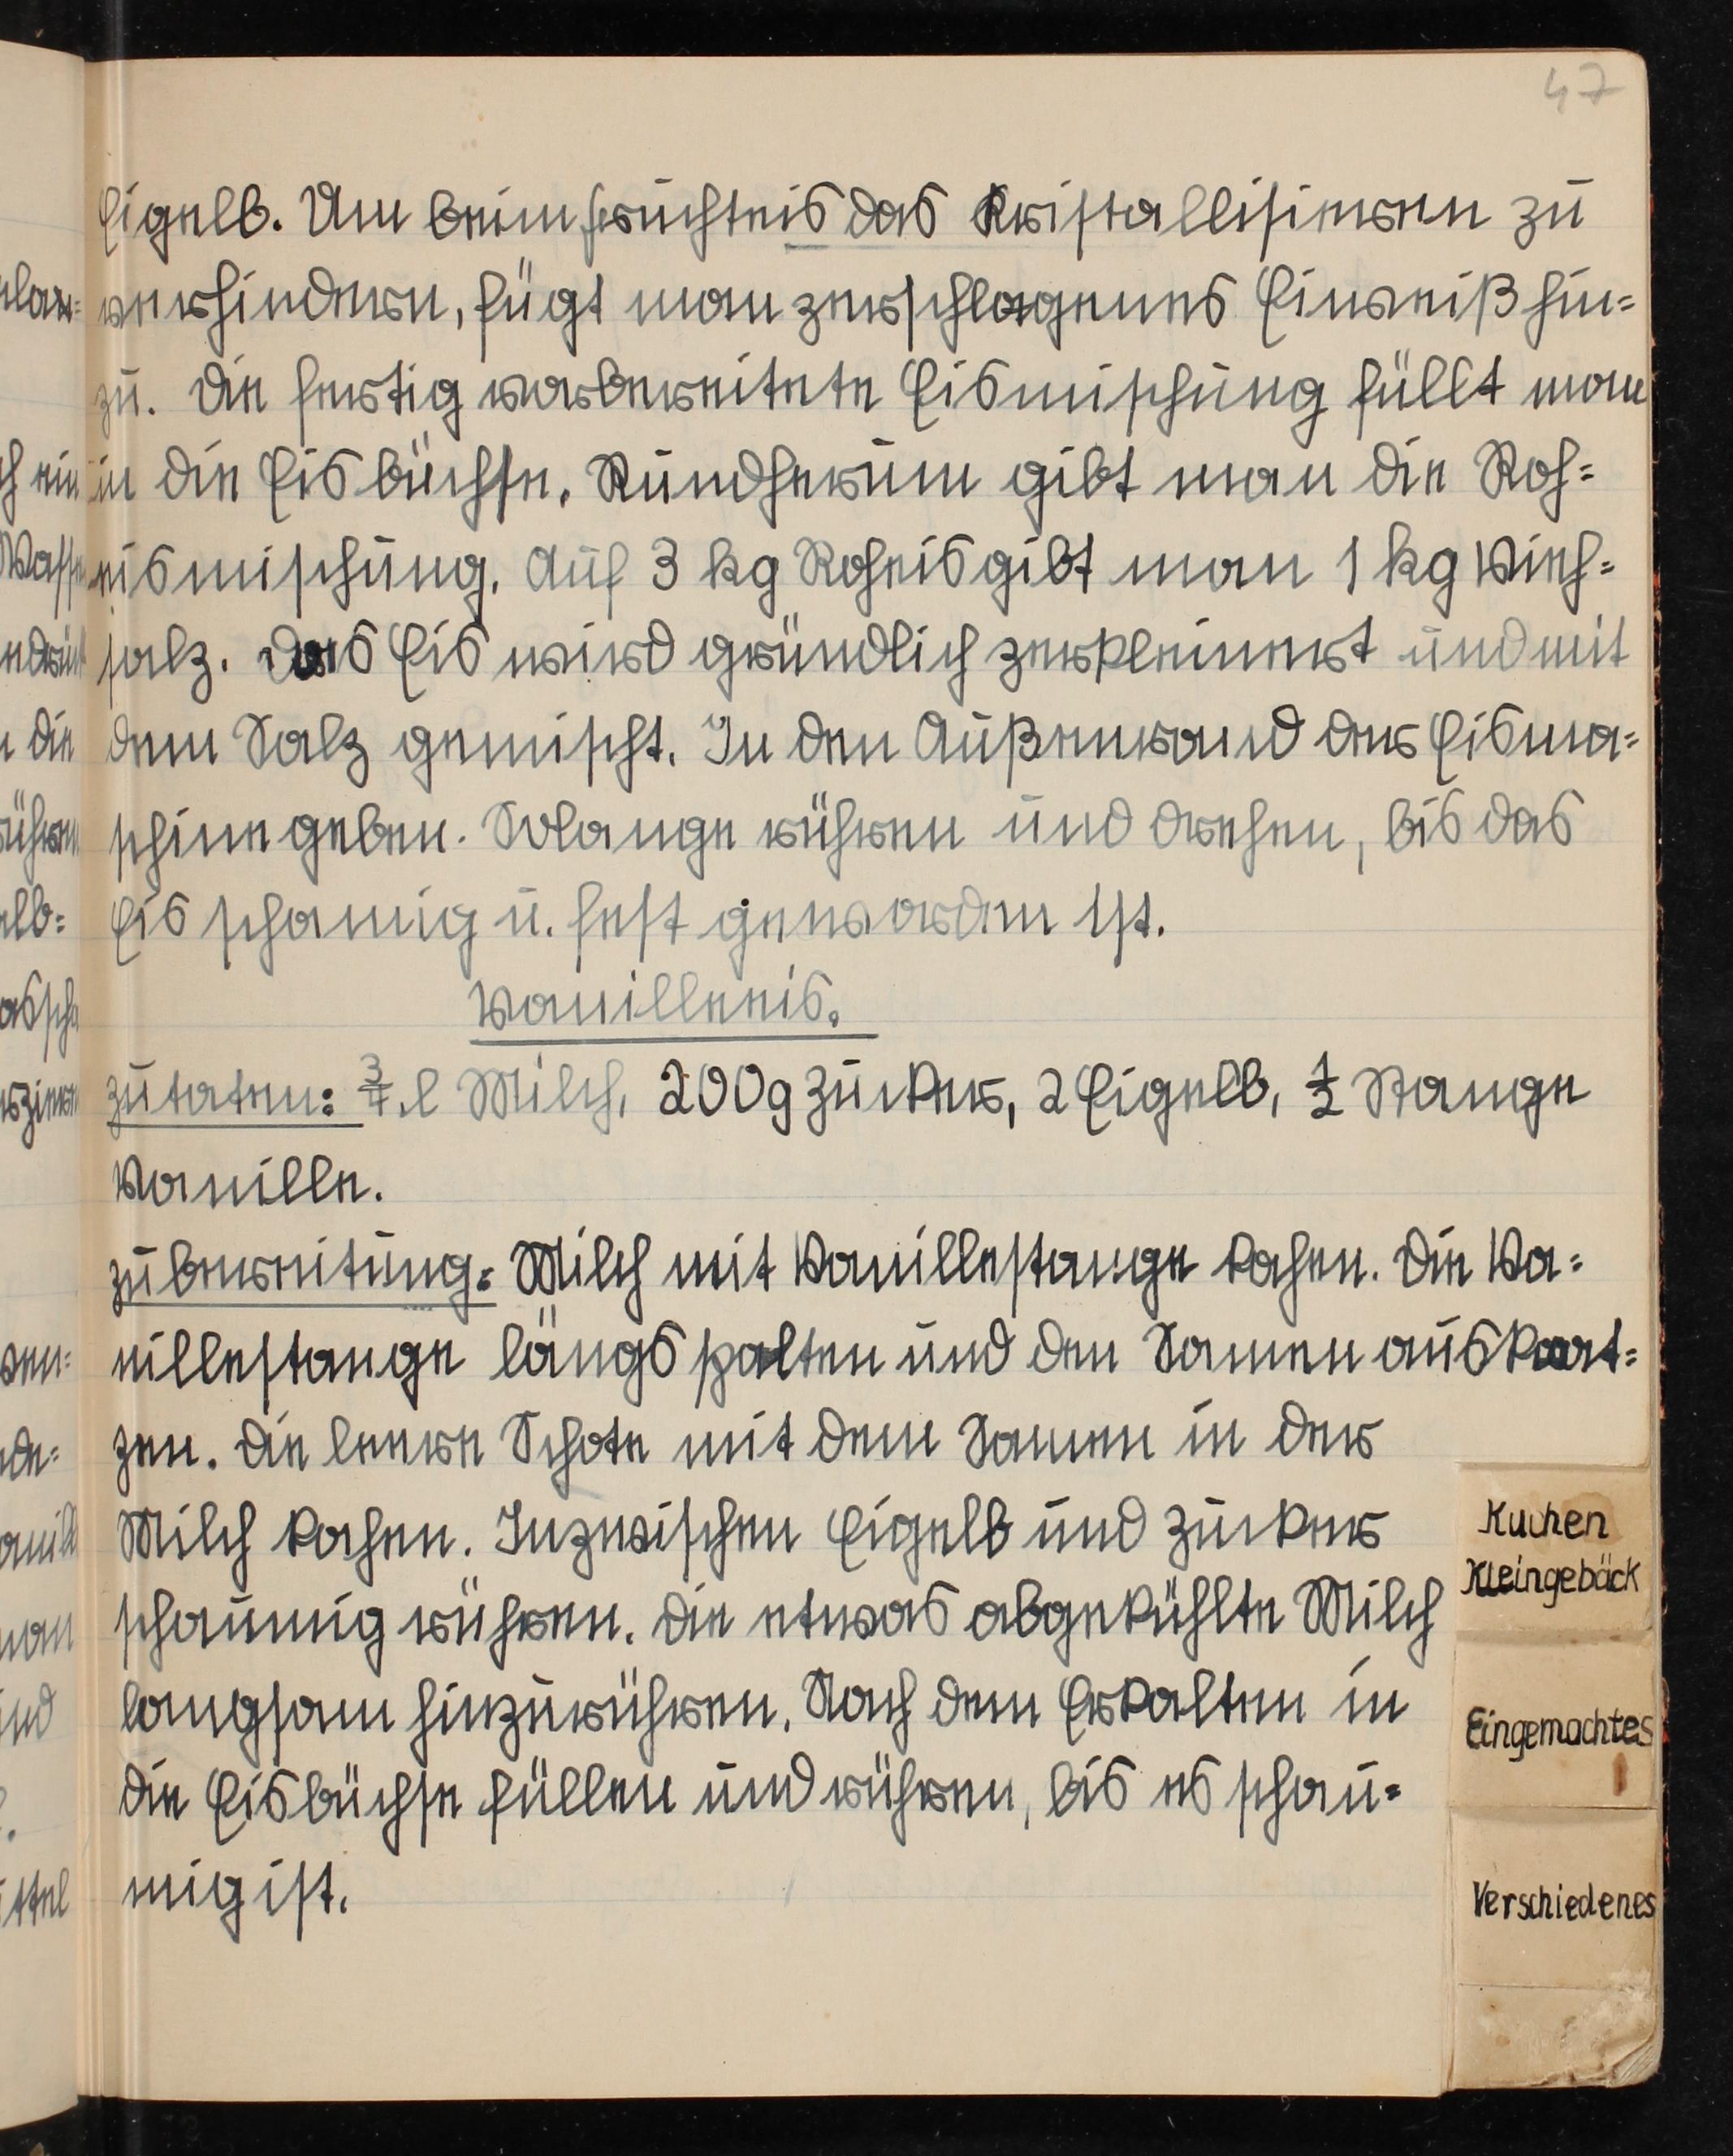 47
Eigelb. Um beim Früchteis das Kristallisieren zu
verhindern, fügt man zerschlagenes Eiweiß hin=
zu. Die fertig vorbereitete Eismischung füllt man
in die Eisbüchse. Rundherum gibt man die Roh=
eismischung. Auf 3 kg Roheis gibt man 1 kg Vieh=
salz. Das Eis wird gründlich zerkleinert und mit
dem Salz gemischt. In den Außenrand der Eisma=
schine geben. Solange rühren und drehen, bis das
Eis schamig u. fest geworden ist.
Vanilleeis.
Zutaten: 3/4 l Milch, 200g Zucker, 2 Eigelb, 1/2 Stange
Vanille.
Zubereitung: Milch mit Vanillestange kochen. Die Va=
nillestange längs spalten und den Samen auskrat=
zen. Die leere Schote mit dem Samen in der
Milch kochen. Inzwischen Eigelb und Zucker
schaumig rühren. Die etwas abgekühlte Milch
langsam hinzurühren. Nach dem Erkalten in
die Eisbüchse füllen und rühren, bis es schau=
mig ist.
Kuchen
Kleingebäck
Eingemachtes
Verschiedenes